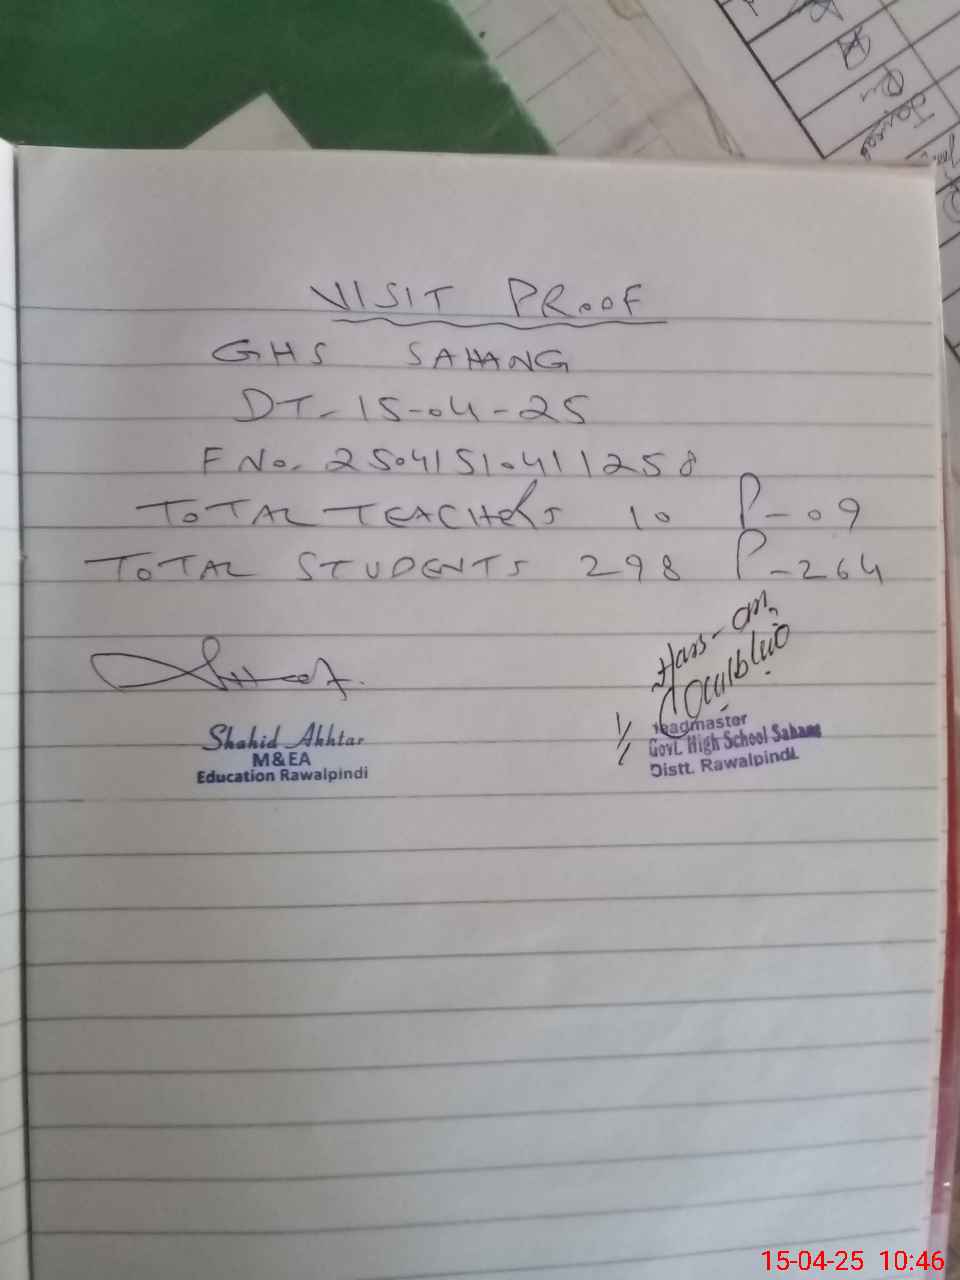 VISIT PROOF
GHS SAHANG
DT- 15-04-25
F No. 25041510411258
TOTAL TEACHERS 10 P-09
TOTAL STUDENTS 298 P-264
Shahid Akhtar
M&EA
Education Rawalpindi
Headmaster
Govt. High School Sahang
Distt. Rawalpindi.
15-04-25 10:46